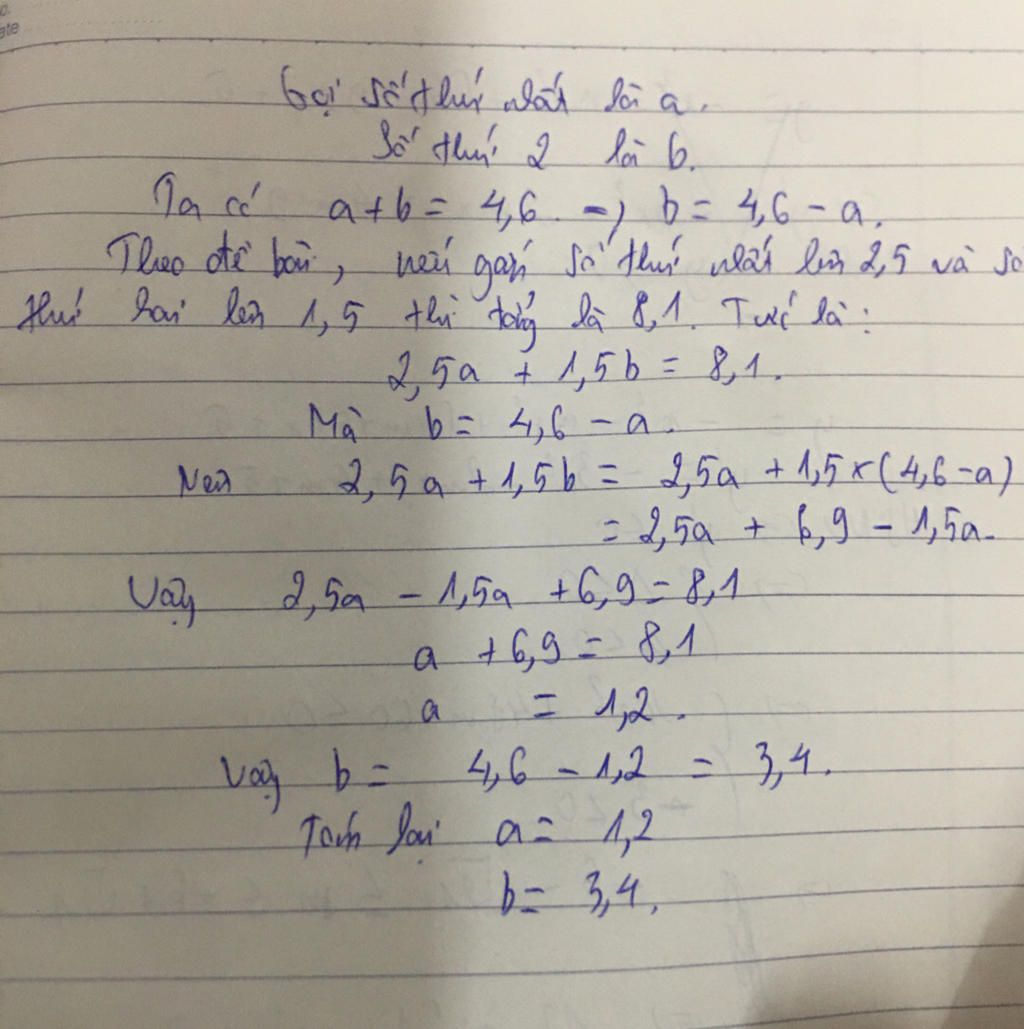 Gọi số thứ nhất là a.
Số thứ 2 là b.
Ta có a + b = 4,6. → b = 4,6 - a.
Theo đề bài, nếu gấp số thứ nhất lên 2,5 và số
thứ hai lên 1,5 thì tổng là 8,1. Tức là:
2,5a + 1,5b = 8,1.
Mà b = 4,6 - a.
Nên 2,5a + 1,5b = 2,5a + 1,5 × (4,6 - a)
= 2,5a + 6,9 - 1,5a.
Vậy 2,5a - 1,5a + 6,9 = 8,1
a + 6,9 = 8,1
a = 1,2.
Vậy b = 4,6 - 1,2 = 3,4.
Tóm lại a = 1,2
b = 3,4.